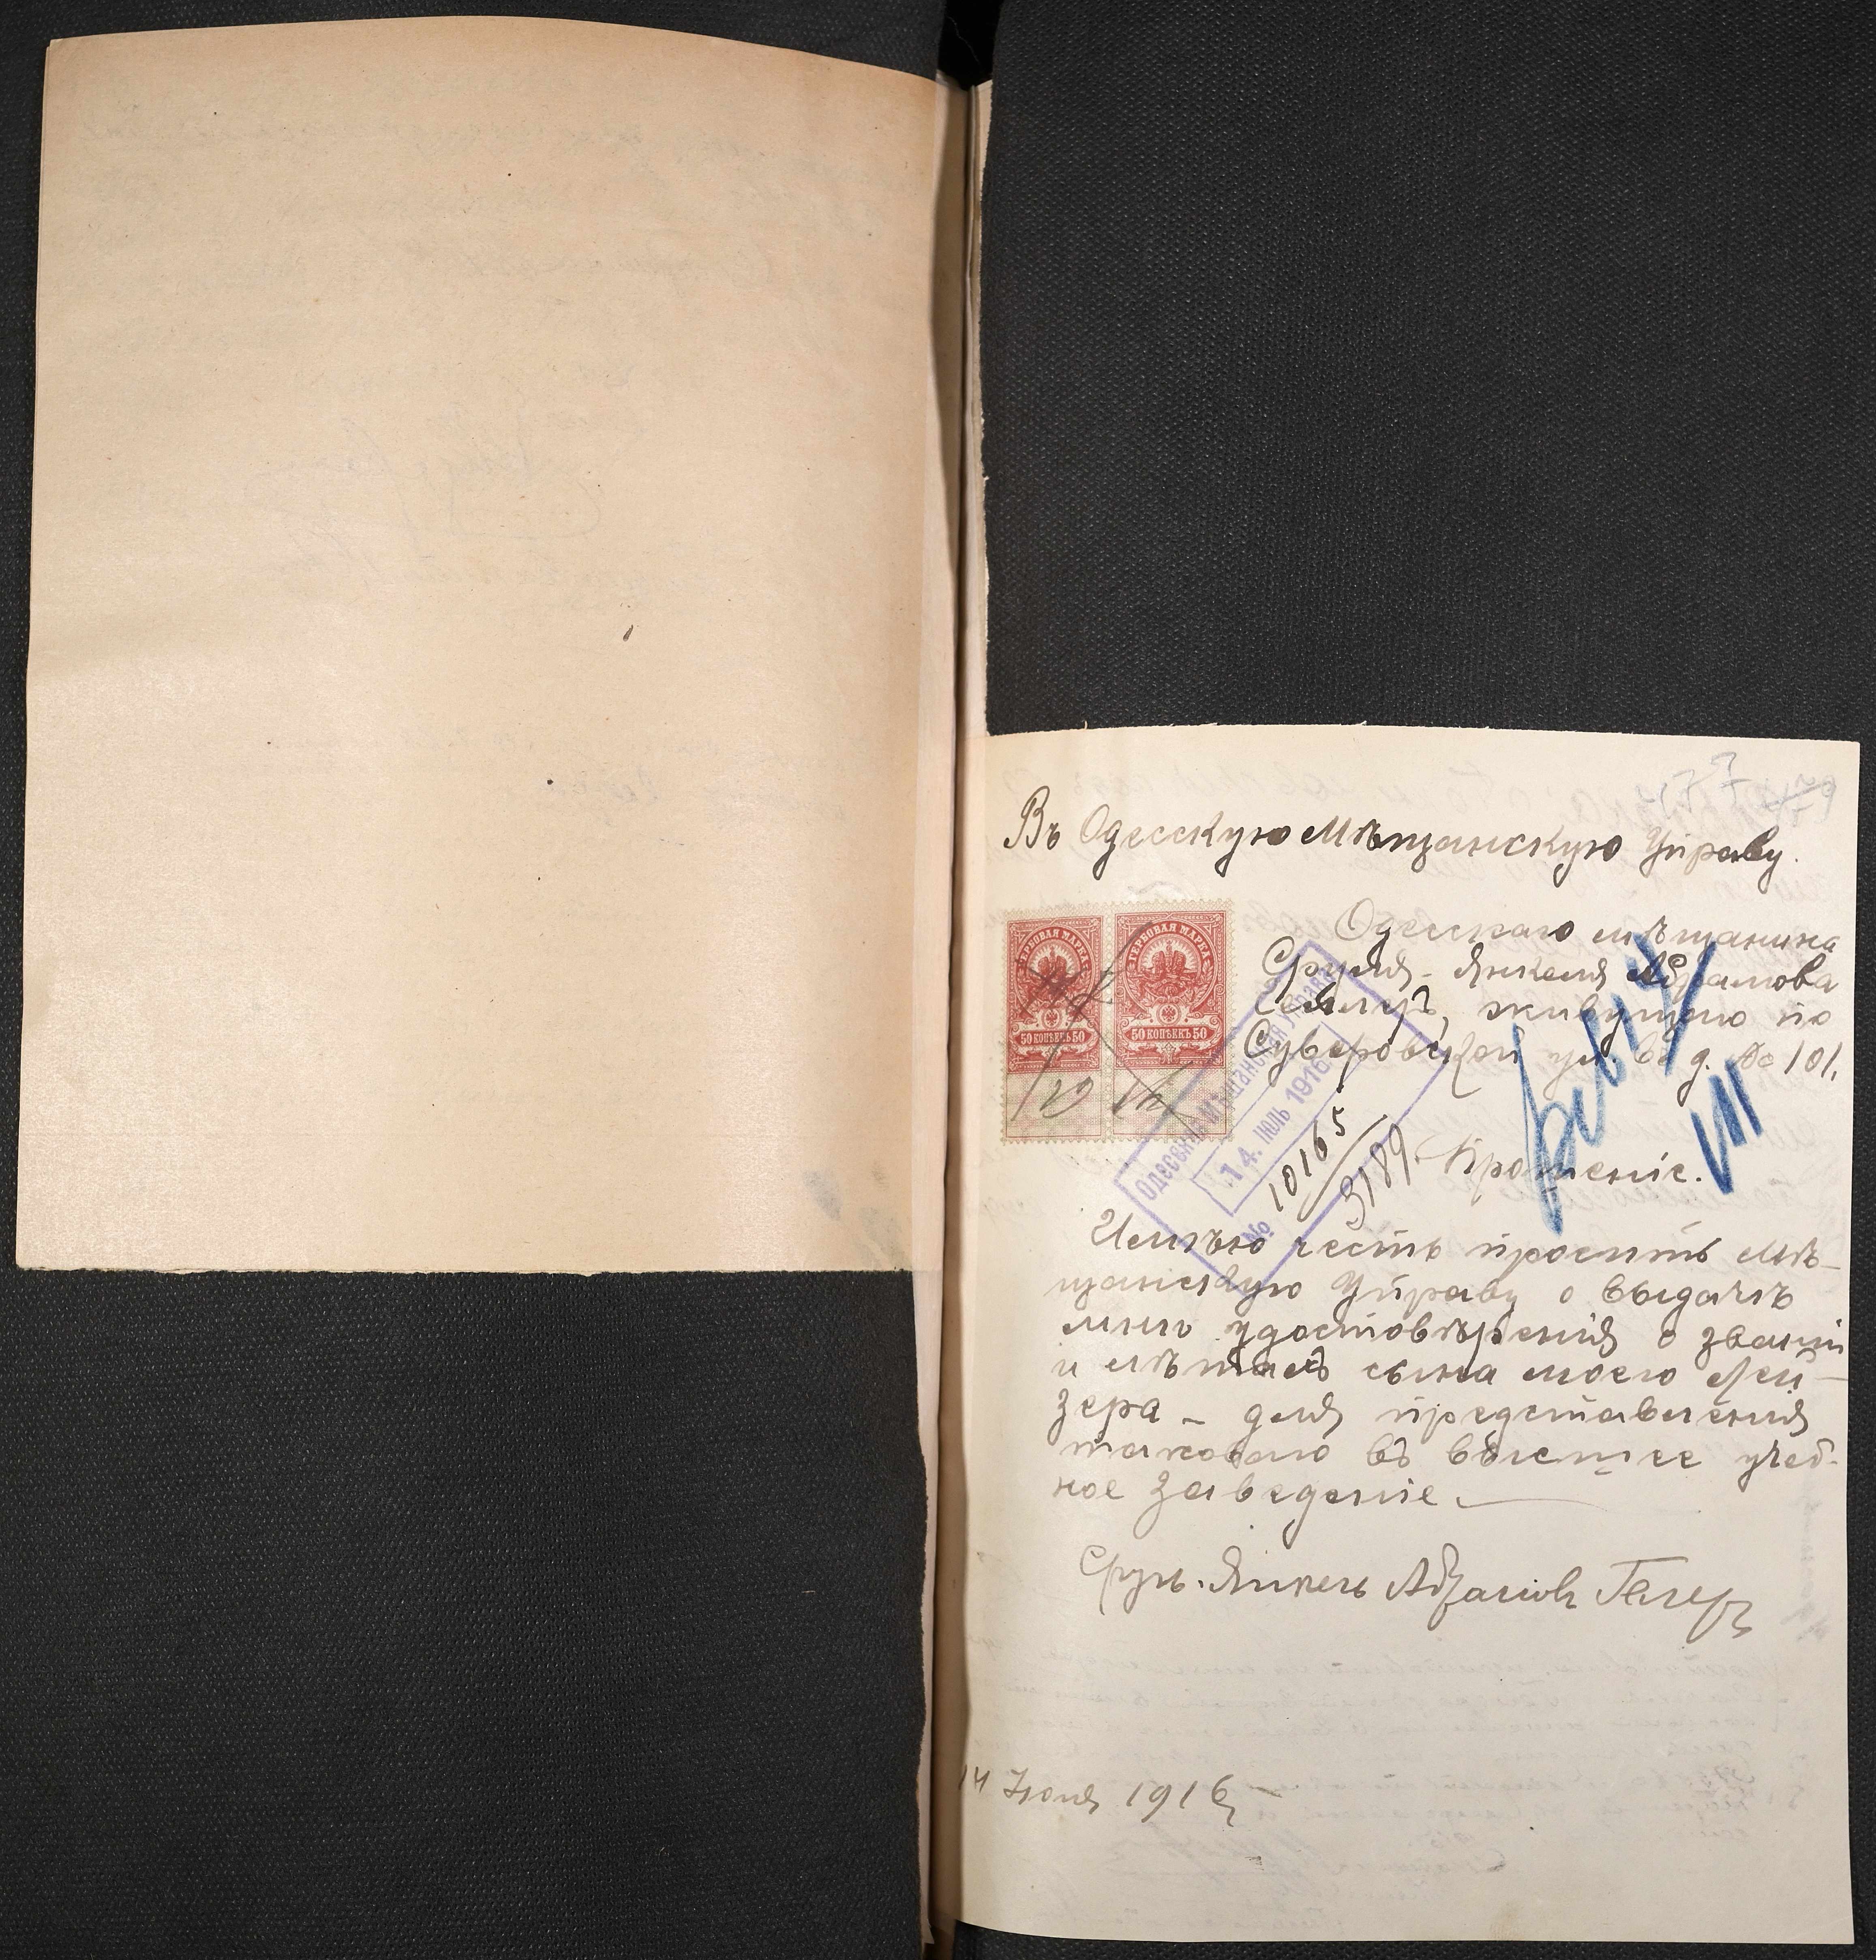 Въ Одесскую Мѣщанскую Управу.
Одесскаго мѣщанина
Сруля-Янкеля Абрамова
Геллеръ, живущаго по
Суворовской ул. въ д. № 101.
ГЕРБОВАЯ МАРКА
50 КОПѢЕКЪ 50
ГЕРБОВАЯ МАРКА
50 КОПѢЕКЪ 50
Одесская Мѣщанская Управа
14. ІЮЛЬ 1916
№ 10165
3189
Прошеніе.
VII
Имѣю честь просить Мѣ-
щанскую Управу о выдачѣ
мнѣ удостовѣренія о званіи
и лѣтахъ сына моего Лей-
зера – для представленія
таковаго въ высшее учеб-
ное заведеніе.
Сруль-Янкель Абрамовъ Геллеръ
14 Іюля 1916